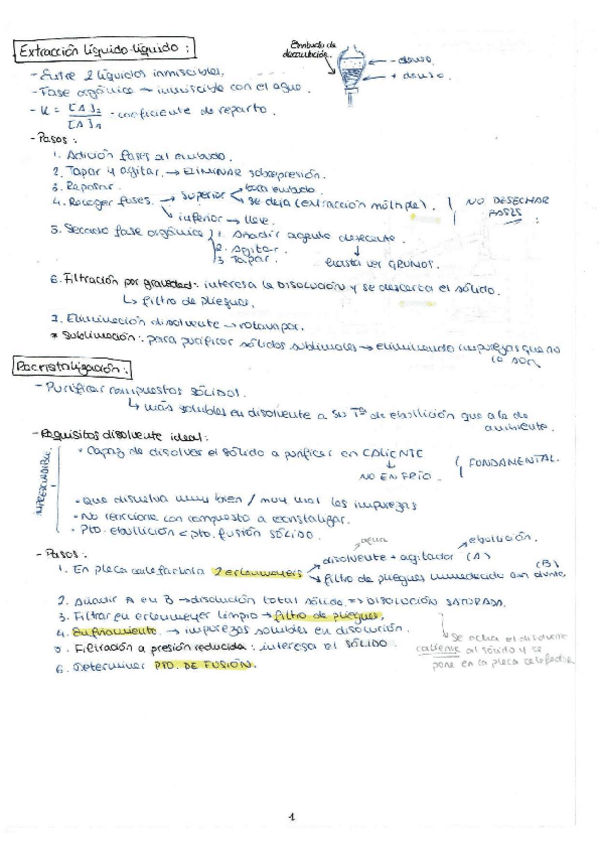 Extracción líquido-líquido:
Embudo de
decantación.
- denso.
+ denso.
- Entre 2 líquidos inmiscibles.
- Fase orgánica → inmiscible con el agua.
- K = [A]2 / [A]1 - coeficiente de reparto.
- Pasos:
1. Adición fases al embudo.
2. Tapar y agitar. → ELIMINAR sobrepresión.
3. Reposar.
4. Recoger fases. → superior < boca embudo.
se deja (extracción múltiple).
inferior → llave.
NO DESECHAR
FASES
5. Secado fase orgánica 1. Añadir agente desecante.
2. Agitar.
3. Tapar.
hasta ver GRUMOS.
6. Filtración por gravedad: interesa la DISOLUCIÓN y se descarta el sólido.
↳ filtro de pliegues.
7. Eliminación disolvente → rotavapor.
* Sublimación: para purificar sólidos sublimables → eliminando impurezas que no
lo son.
Recristalización:
- Purificar compuestos SÓLIDOS.
↳ más solubles en disolvente a su Tª de ebullición que a la de
ambiente.
- Requisitos disolvente ideal:
IMPRESCINDIBLE.
· Capaz de disolver el sólido a purificar en CALIENTE
↓
NO EN FRÍO.
FUNDAMENTAL.
· Que disuelva muy bien / muy mal las impurezas
· No reaccione con compuesto a cristalizar.
· Pto. ebullición < pto. fusión SÓLIDO.
- Pasos:
agua
ebullición.
1. En placa calefactora 2 erlenmeyers disolvente + agitador (A)
filtro de pliegues humedecido con disolvte (B)
2. Añadir A en B → disolución total sólido. => DISOLUCIÓN SATURADA.
3. Filtrar en erlenmeyer limpio → filtro de pliegues.
4. Enfriamiento → impurezas solubles en disolución.
5. Filtración a presión reducida: interesa el SÓLIDO.
6. Determinar PTO. DE FUSIÓN.
Se echa el disolvente
caliente al sólido y se
pone en la placa calefactora
1